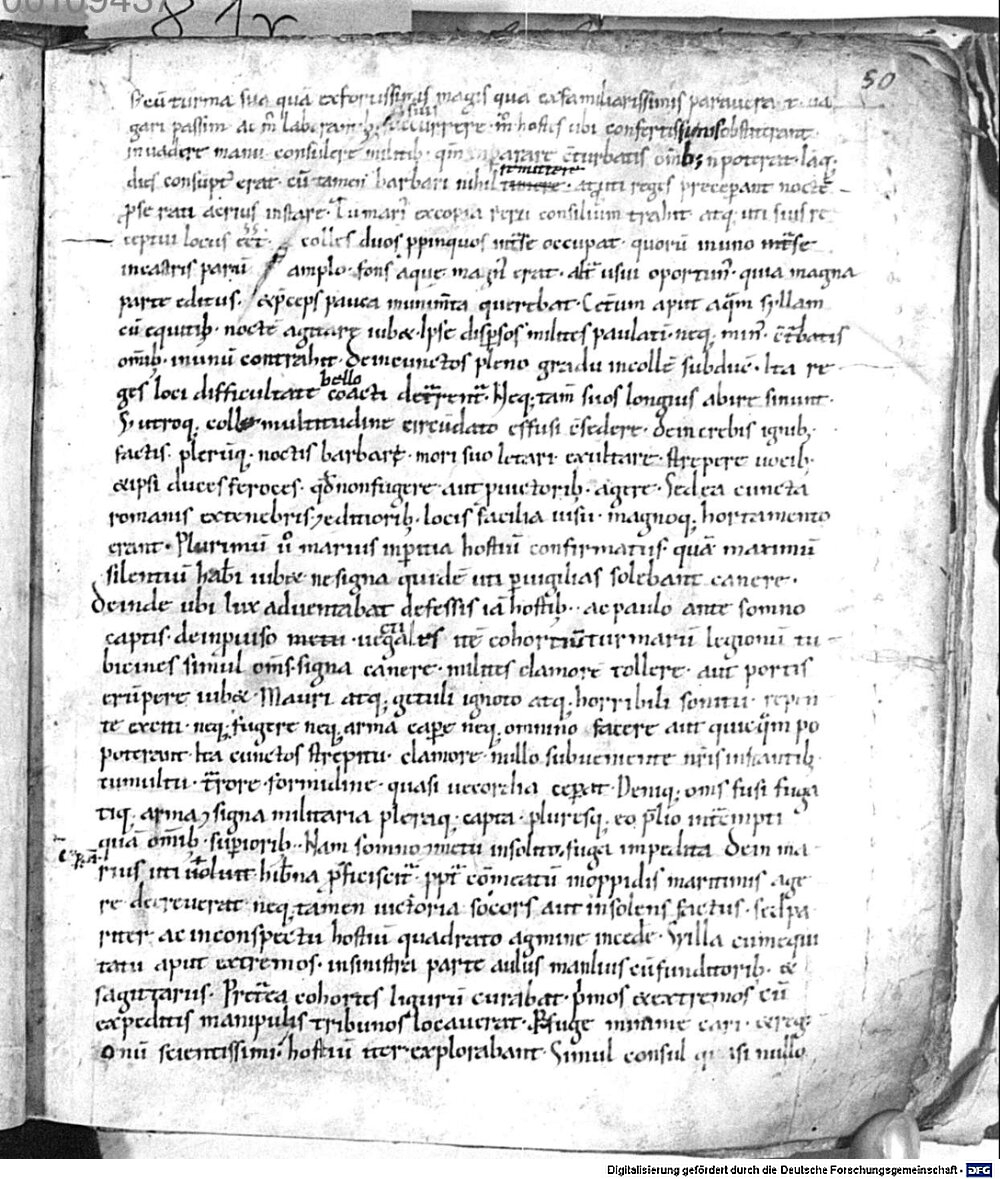 00109437
81r
50
Sed cū turma sua quā ex fortissimis magis quā ex familiarissimis paraverat va
gari passim ac m̄ laborantib; suis succurrere m̄ hostes ubi confertissimi obstiterant
invadere manu consulere militib; qm̄ imparare c̄turbatis om̄ib; n̄ poterat. Iāq;
dies consūpt' erat cū tamen barbari nihil remittere atq; uti reges preceperant noctē
p̄ se rati acrius instare. Tū mari' ex copia rerū consiliūm trahit atq; uti suis re
ceptui locus eēt colles duos p̄pinquos int̄ se occupat quorū in uno
in castris parū amplo fons aque magn' erat alt̄ usui oportun' quia magna
parte editus & p̄ceps pauca munim̄ta querebat. Cet̄um aput aquā syllam
cū equitib; noctē agitare iub&. Ipse disp̄sos milites paulatī neq; min' c̄t̄batis
om̄ib; in unū contrahit. dein cunctos pleno gradu in collē subduc̄. Ita re
ges loci difficultate coacti bello det̄rent̄. Neq; tam̄ suos longius abire sinunt.
S; utroq; colle multitudine circūdato effusi c̄sedere. dein crebis ignib;
factis. plerūq; noctis barbare mori suo letari. exultare. strepere vocib;
& ipsi duces feroces. qd̄ non fugere aut p̄ victorib; agere. Sed ea cuncta
romanis ex tenebris & editiorib; locis facilia visu. magnoq; hortamento
erant. Plurimū u̅ marius inp̄itia hostiū confirmatus quā maximū
silentiū hab̄i iub& ne signa quidē uti p̄ vigilias solebant canere.
Deinde ubi lux adventabat defessis iā hostib; ac paulo ante somno
captis. de inp̄viso vectigales itē cohortiū turmarū legionū tu
bicines simul om̄s signa canere. milites clamorē tollere. aut portis
erūpere iub&. Mauri atq; getuli ignoto atq; horribili sonitu repen
te exciti. neq; fugere neq; arma cap̄e neq; omnino facere aut quicq̄m po
poterant. Ita cunctos strepitu. clamore. nullo subveniente nr̄is instantib;
tumultu. t̄rore. formidine. quasi vecordia cep̄at. Deniq; om̄s fusi fuga
tiq; arma & signa militaria pleraq; capta. pluresq; eo p̄lio int̄empti
quā om̄ib; sup̄iorib;. Nam somno & metu insolito fuga impedita. Dein ma
rius uti voluit hib̄na p̄ficiscit̄. p̄pt̄ cōmeatū in oppidis maritimis age
re decreverat neq; tamen victoria socors aut insolens factus. sed pa
riter ac in conspectu hostiū quadrato agmine incede. Sylla cum equi
tatu aput extremos. in sinistra parte aulus manlius cū funditorib; &
sagittariis. Pret̄ea cohortes ligurū curabat. p̄mos & extremos cū
expeditis manipulis tribunos locaverat. P̄fuge minime cari. & reg
onū scientissimi. hostiū iter explorabant. Simul consul quasi nullo
Digitalisierung gefördert durch die Deutsche Forschungsgemeinschaft - DFG